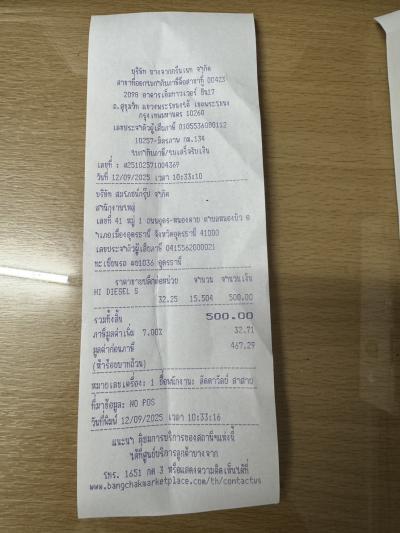 บริษัท บางจากกรีนเนท จำกัด
สาขาที่ออกใบกำกับภาษีคือสาขาที่ 00423
2098 อาคารเอ็มทาวเวอร์ ชั้น7
ถ.สุขุมวิท แขวงพระโขนงใต้ เขตพระโขนง
กรุงเทพมหานคร 10260
เลขประจำตัวผู้เสียภาษี 0105536000112
10257-มิตรภาพ กม.134
ใบกำกับภาษี/ใบเสร็จรับเงิน
เลขที่ : 25102571004369
วันที่ 12/09/2025 เวลา 10:33:10
บริษัท กรุ๊ป จำกัด
สำนักงานใหญ่
เลขที่ 41 หมู่ 1 ถนนอุดร-หนองคาย ตำบลหนองบัว อ
ำเภอเมืองอุดรธานี จังหวัดอุดรธานี 41000
เลขประจำตัวผู้เสียภาษี 0415562000021
ทะเบียนรถ 1036 อุดรธานี
ราคาขายปลีกต่อหน่วย จำนวน จำนวนเงิน
HI DIESEL S
32.25 15.504 500.00
รวมทั้งสิ้น 500.00
ภาษีมูลค่าเพิ่ม 7.00% 32.71
มูลค่าก่อนภาษี 467.29
(ห้าร้อยบาทถ้วน)
หมายเลขเครื่อง: 1 ชื่อพนักงาน: ลัดดาวัลย์
ที่มาข้อมูล: NO POS
วันที่พิมพ์ 12/09/2025 เวลา 10:33:16
แนะนำ ติชมการบริการของสถานีฯแห่งนี้
ได้ที่ศูนย์บริการลูกค้าบางจาก
โทร. 1651 กด 3 หรือแสดงความคิดเห็นได้ที่
www.bangchakmarketplace.com/th/contactus